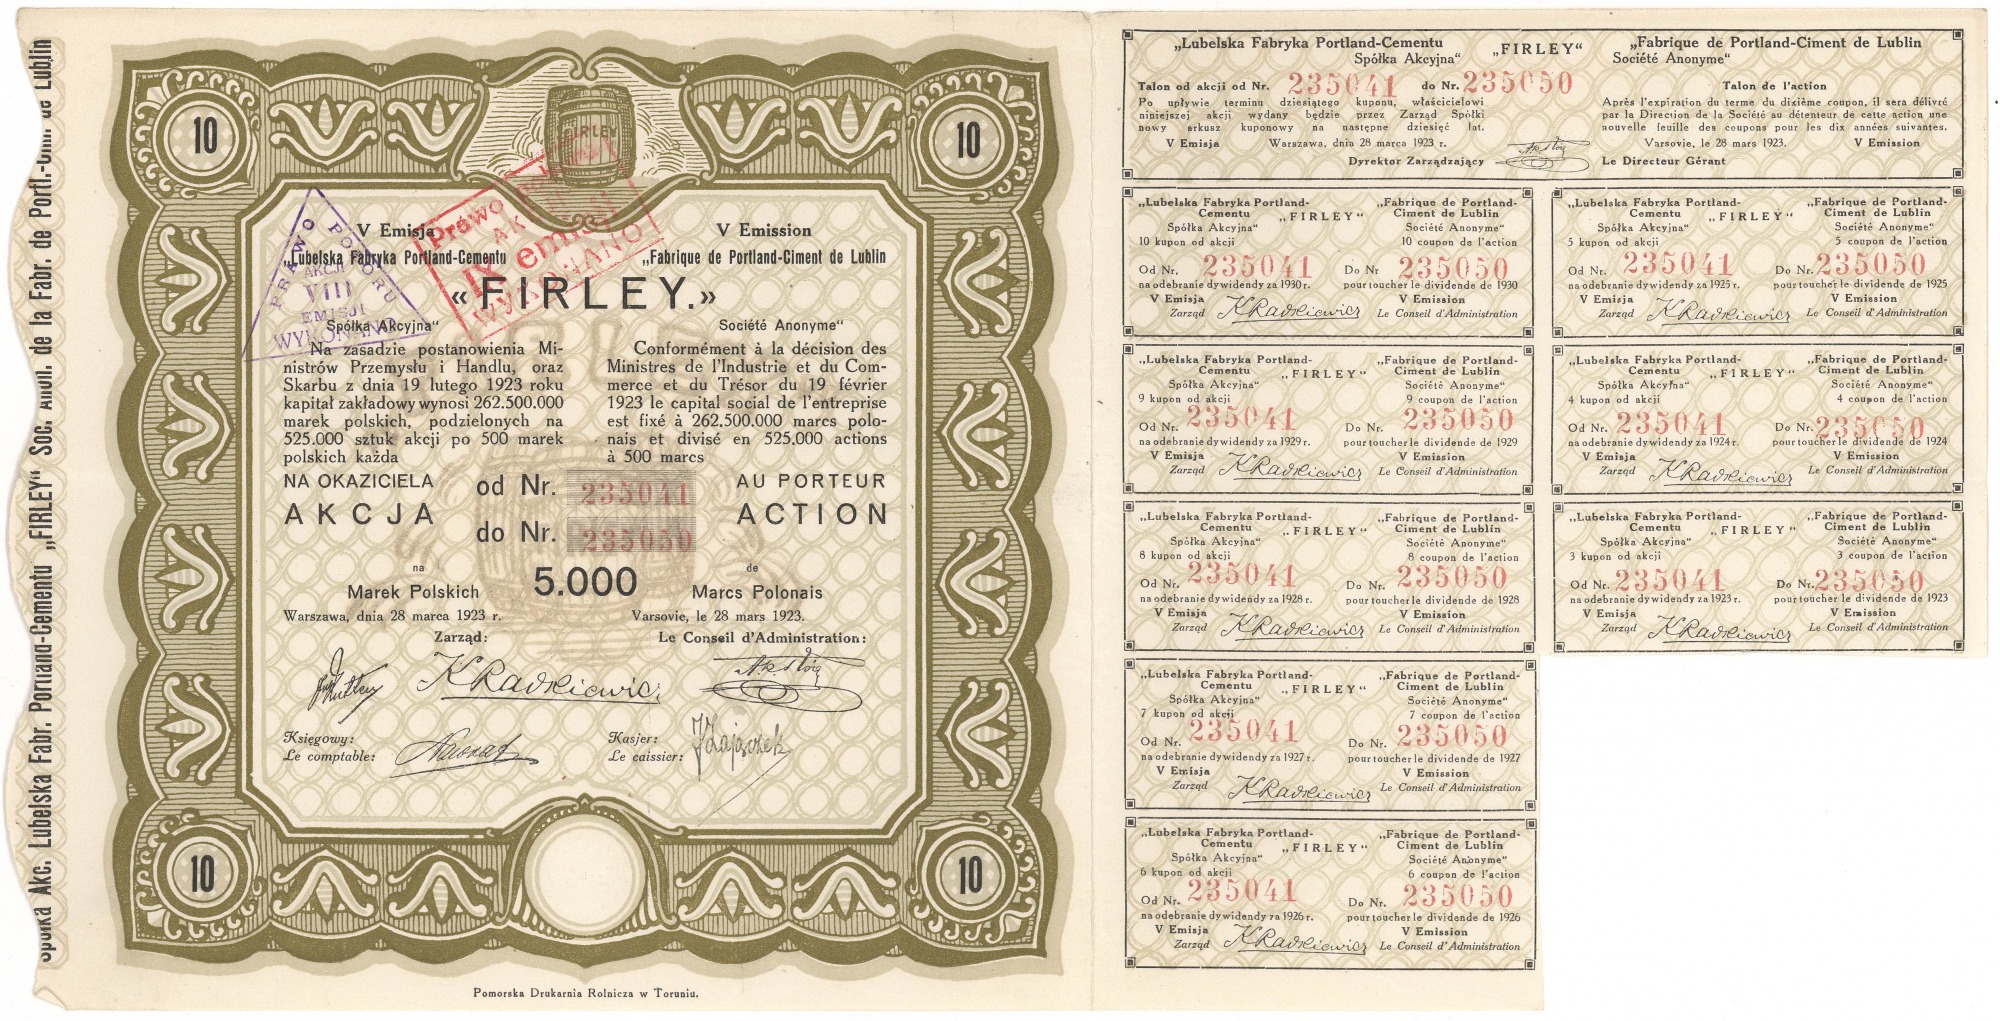 Spółka Akc. Lubelska Fabr. Portland-Cementu „FIRLEY“ Soc. Anon. de la Fabr. de Portl.-Cim. de Lublin
10
10
FIRLEY
V Emisja
V Emission
„Lubelska Fabryka Portland-Cementu
„Fabrique de Portland-Ciment de Lublin
«FIRLEY.»
Spółka Akcyjna“
Société Anonyme“
PRAWO POBORU
AKCJI
VIII
EMISJI
WYKONANO
Prawo
IX emisji
WYKONANO
Na zasadzie postanowienia Mi-
nistrów Przemysłu i Handlu, oraz
Skarbu z dnia 19 lutego 1923 roku
kapitał zakładowy wynosi 262.500.000
marek polskich, podzielonych na
525.000 sztuk akcji po 500 marek
polskich każda
Conformément à la décision des
Ministres de l'Industrie et du Com-
merce et du Trésor du 19 février
1923 le capital social de l'entreprise
est fixé à 262.500.000 marcs polo-
nais et divisé en 525.000 actions
à 500 marcs
NA OKAZICIELA
od Nr. 235041
AU PORTEUR
AKCJA
do Nr. 235050
ACTION
na
de
Marek Polskich
5.000
Marcs Polonais
Warszawa, dnia 28 marca 1923 r.
Varsovie, le 28 mars 1923.
Zarząd:
Le Conseil d'Administration:
KRadkiewicz
Księgowy:
Le comptable:
Kasjer:
Le caissier:
10
10
Pomorska Drukarnia Rolnicza w Toruniu.
„Lubelska Fabryka Portland-Cementu
Spółka Akcyjna“
„FIRLEY“
„Fabrique de Portland-Ciment de Lublin
Société Anonyme“
Talon od akcji od Nr. 235041 do Nr. 235050
Talon de l'action
Po upływie terminu dziesiątego kuponu, właścicielowi
niniejszej akcji wydany będzie przez Zarząd Spółki
nowy arkusz kuponowy na następne dziesięć lat.
Après l'expiration du terme du dixième coupon, il sera délivré
par la Direction de la Société au détenteur de cette action une
nouvelle feuille des coupons pour les dix années suivantes.
V Emisja Warszawa, dnia 28 marca 1923 r.
Varsovie, le 28 mars 1923. V Emission
Dyrektor Zarządzający
Le Directeur Gérant
„Lubelska Fabryka Portland-
Cementu
Spółka Akcyjna“
„FIRLEY“
„Fabrique de Portland-
Ciment de Lublin
Société Anonyme“
10 kupon od akcji
10 coupon de l'action
Od Nr. 235041 Do Nr 235050
na odebranie dywidendy za 1930 r. pour toucher le dividende de 1930
V Emisja V Emission
Zarząd KRadkiewicz Le Conseil d'Administration
„Lubelska Fabryka Portland-
Cementu
Spółka Akcyjna“
„FIRLEY“
„Fabrique de Portland-
Ciment de Lublin
Société Anonyme“
5 kupon od akcji
5 coupon de l'action
Od Nr. 235041 Do Nr. 235050
na odebranie dywidendy za 1925 r. pour toucher le dividende de 1925
V Emisja V Emission
Zarząd KRadkiewicz Le Conseil d'Administration
„Lubelska Fabryka Portland-
Cementu
Spółka Akcyjna“
„FIRLEY“
„Fabrique de Portland-
Ciment de Lublin
Société Anonyme“
9 kupon od akcji
9 coupon de l'action
Od Nr. 235041 Do Nr. 235050
na odebranie dywidendy za 1929 r. pour toucher le dividende de 1929
V Emisja V Emission
Zarząd KRadkiewicz Le Conseil d'Administration
„Lubelska Fabryka Portland-
Cementu
Spółka Akcyjna“
„FIRLEY“
„Fabrique de Portland-
Ciment de Lublin
Société Anonyme“
4 kupon od akcji
4 coupon de l'action
Od Nr. 235041 Do Nr. 235050
na odebranie dywidendy za 1924 r. pour toucher le dividende de 1924
V Emisja V Emission
Zarząd KRadkiewicz Le Conseil d'Administration
„Lubelska Fabryka Portland-
Cementu
Spółka Akcyjna“
„FIRLEY“
„Fabrique de Portland-
Ciment de Lublin
Société Anonyme“
8 kupon od akcji
8 coupon de l'action
Od Nr. 235041 Do Nr. 235050
na odebranie dywidendy za 1928 r. pour toucher le dividende de 1928
V Emisja V Emission
Zarząd KRadkiewicz Le Conseil d'Administration
„Lubelska Fabryka Portland-
Cementu
Spółka Akcyjna“
„FIRLEY“
„Fabrique de Portland-
Ciment de Lublin
Société Anonyme“
3 kupon od akcji
3 coupon de l'action
Od Nr. 235041 Do Nr. 235050
na odebranie dywidendy za 1923 r. pour toucher le dividende de 1923
V Emisja V Emission
Zarząd KRadkiewicz Le Conseil d'Administration
„Lubelska Fabryka Portland-
Cementu
Spółka Akcyjna“
„FIRLEY“
„Fabrique de Portland-
Ciment de Lublin
Société Anonyme“
7 kupon od akcji
7 coupon de l'action
Od Nr. 235041 Do Nr. 235050
na odebranie dywidendy za 1927 r. pour toucher le dividende de 1927
V Emisja V Emission
Zarząd KRadkiewicz Le Conseil d'Administration
„Lubelska Fabryka Portland-
Cementu
Spółka Akcyjna“
„FIRLEY“
„Fabrique de Portland-
Ciment de Lublin
Société Anonyme“
6 kupon od akcji
6 coupon de l'action
Od Nr. 235041 Do Nr. 235050
na odebranie dywidendy za 1926 r. pour toucher le dividende de 1926
V Emisja V Emission
Zarząd KRadkiewicz Le Conseil d'Administration